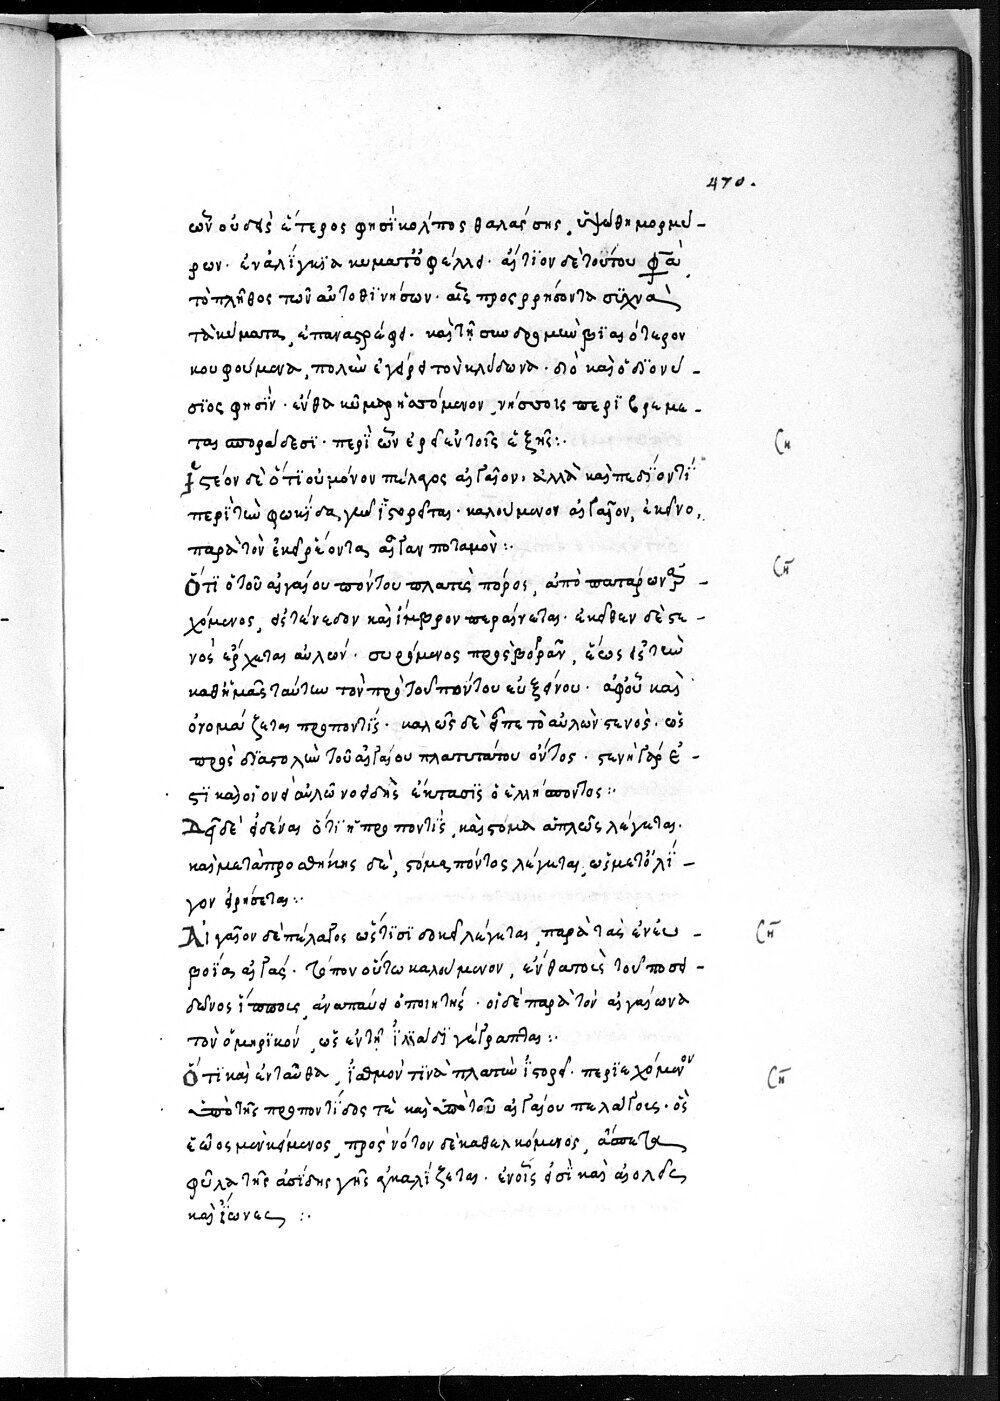 470.
ὧν οὐδεὶς ἕτερος φησὶ κόλπος θαλάσσης, ὑψόθι μορμύ-
ρων· ἐναλίγκια κύματ' ὀφέλλει· αἴτιον δὲ τούτου φασὶ
τὸ πλῆθος τῶν αὐτόθι νήσων· αἷς προσρρήσοντα συχνὰ
τὰ κύματα, ἐπαναστρέφει· καὶ τῇ συνδρομῇ βιαιότερον
κουφούμενα, πολὺν ἐγείρει τὸν κλύδωνα· διὸ καὶ ὁ διονύ-
σιος φησίν· ἔνθα κῦμα ῥησσόμενον, νήσοις περιβρεμε-
ται σποράδεσι· περὶ ὧν ἐρεῖ ἐν τοῖς ἑξῆς:·
Ἰστέον δὲ ὅτι οὐ μόνον πέλαγος αἰγαῖον, ἀλλὰ καὶ πεδίον τὶ
περὶ τὴν φωκίδα γῆν ἱστορεῖται· καλούμενον αἰγαῖον, ἐκεῖνο,
παρὰ τὸν ἐκεῖ ῥέοντα αἰγαν ποταμὸν:·
Ὅτι ὁ τοῦ αἰγαίου πόντου πλατὺς πόρος, ἀπὸ πατάρων ἀρ-
χόμενος, εἰς τένεδον καὶ ἴμβρον περαίνεται· ἐκεῖθεν δὲ στε-
νὸς ἔρχεται αὐλών· συρόμενος πρὸς βορρᾶν, ἕως εἰς τὴν
καθ' ἡμᾶς ταύτην τὸν πρὸ τοῦ πόντου εὐξείνου· ἀφ' οὗ καὶ
ὀνομάζεται προποντίς· καλῶς δὲ εἶπε τὸ αὐλὼν στενὸς· ὡς
πρὸς διαστολὴν τοῦ αἰγαίου πλατυτάτου ὄντος· στενὴ γάρ ἐ-
στι καὶ οἱονεὶ αὐλῶνοειδὴς ἔκτασις ὁ ἑλλήσποντος:·
Δεῖ δὲ εἰδέναι ὅτι ἡ προποντίς, καὶ στόμα ἁπλῶς λέγεται·
καὶ μετὰ προσθήκης δὲ, στόμα πόντος λέγεται, ὡς μετ' ὀλί-
γον εἰρήσεται:·
Αἰγαῖον δὲ πέλαγος ὥς τισι δοκεῖ λέγεται, παρὰ τὰς ἐν εὐ-
βοίᾳ αἰγάς· τόπον οὕτω καλούμενον, ἔνθα τοὺς τοῦ ποσει-
δῶνος ἵππους, ἀναπαύει ὁ ποιητής· οἱ δὲ παρὰ τὸν αἰγαίωνα
τὸν ὁμηρικόν, ὡς ἐν τῇ ἰλιάδι γέγραπται:·
Ὅτι καὶ ἐνταῦθα, ἰσθμόν τινα πλατὺν ἱστορεῖ· περιεχόμενον
ὑπὸ τῆς προποντίδος τὲ καὶ ὑπὸ τοῦ αἰγαίου πελάγους· ὃς
ἑῷος μὲν κείμενος, πρὸς νότον δὲ καθελκόμενος, ἄσπετα
φῦλα τῆς ἀσίδης γῆς ἀγκαλίζεται· ἐν οἷς εἰσὶ καὶ αἰολεῖς
καὶ ἴωνες:·
Ση
Ση
Ση
Ση